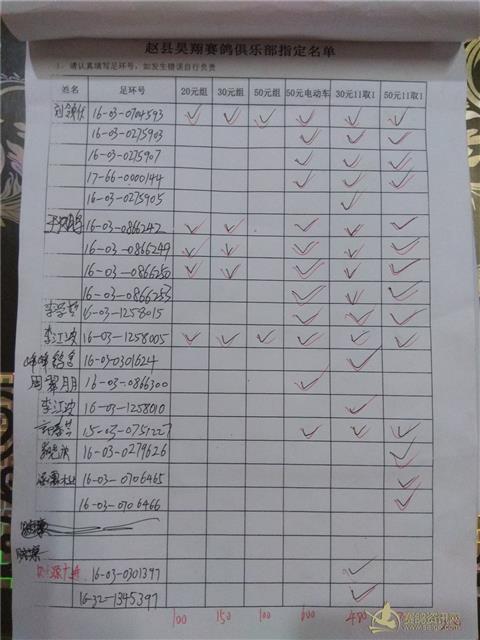 赵县昊翔赛鸽俱乐部指定名单
1、请认真填写足环号，如发生错误自行负责
姓名 足环号 20元组 30元组 50元组 50元电动车 30元11取1 50元11取1
16-03-0704593 ✓ ✓ ✓ ✓ ✓ ✓
16-03-0275903 ✓ ✓ ✓
16-03-0275907 ✓ ✓ ✓
17-66-0000144 ✓ ✓ ✓
16-03-0275905 ✓
16-03-0866242 ✓ ✓ ✓ ✓ ✓
16-03-0866249 ✓ ✓ ✓ ✓ ✓
16-03-0866250 ✓ ✓ ✓ ✓ ✓
16-03-0866253 ✓ ✓ ✓
16-03-1258015 ✓ ✓ ✓
李江波 16-03-1258005 ✓ ✓ ✓ ✓ ✓ ✓
16-03-0301624 ✓
周翠朋 16-03-0866300 ✓
李江波 16-03-1258010 ✓
15-03-0751227 ✓ ✓ ✓
16-03-0279626 ✓
16-03-0706465 ✓
16-03-0706466 ✓
16-03-0301397 ✓
16-32-1345397 ✓
100 150 100 600 480
赛鸽资讯网